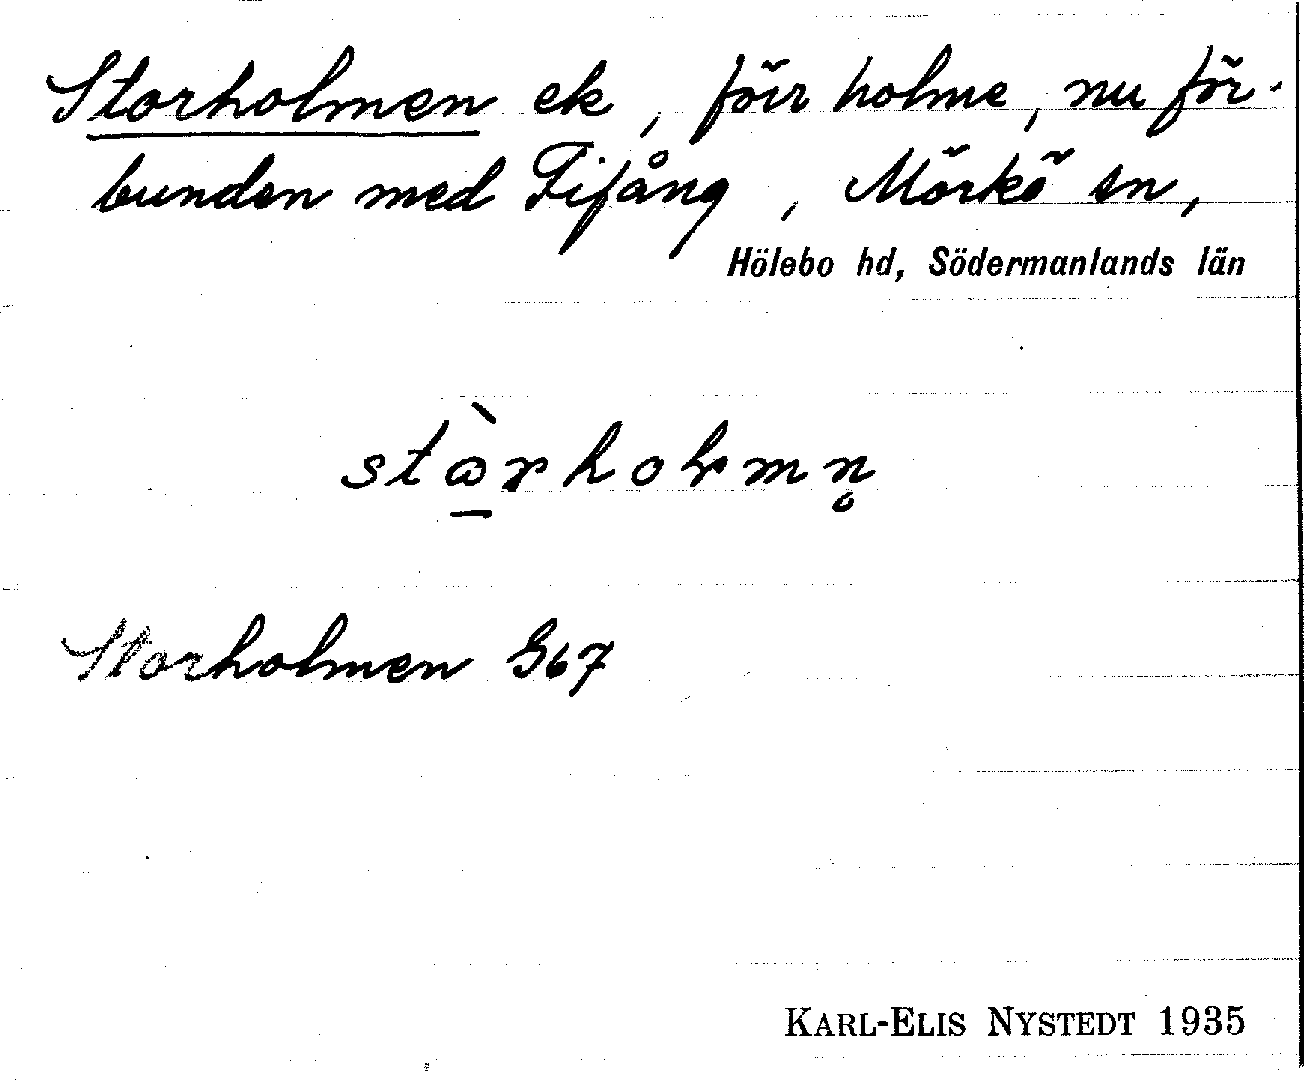 Storholmen ek, förr holme, nu för-
bunden med Fifång, Mörkö sn,
Hölebo hd, Södermanlands län
Storholmen G67
KARL-ELIS NYSTEDT 1935